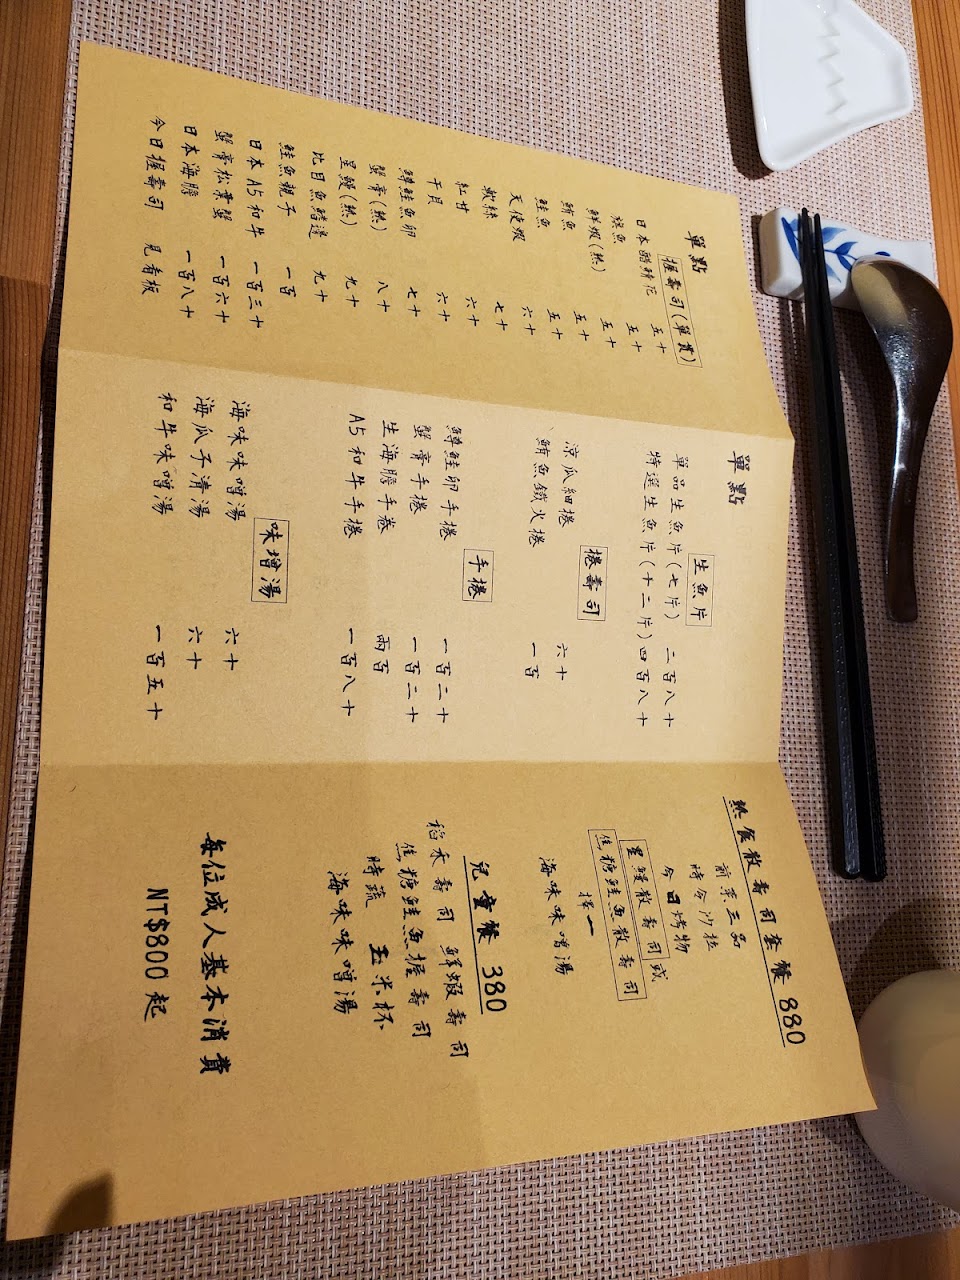 單點
握壽司(單貫)
日本醋鯖花 五十
旗魚 五十
鮮蝦(熟) 五十
鮪魚 五十
鮭魚 五十
天使蝦 六十
軟絲 七十
紅甘 六十
干貝 六十
鱒鮭魚卵 七十
蟹膏(熟) 八十
星鰻(熟) 九十
比目魚鰭邊 九十
鮭魚親子 一百
日本A5和牛 一百三十
蟹膏松葉蟹 一百六十
日本海膽 一百八十
今日握壽司 見看板
單點
生魚片
單品生魚片(七片) 二百八十
特選生魚片(十二片)四百八十
捲壽司
涼瓜細捲 六十
鮪魚鐵火捲 一百
手捲
鱒鮭卵手捲 一百二十
蟹膏手捲 一百二十
生海膽手卷 兩百
A5和牛手捲 一百八十
味增湯
海味味噌湯 六十
海瓜子清湯 六十
和牛味噌湯 一百五十
熟食散壽司套餐 880
前菜三品
時令沙拉
今日烤物
星鰻散壽司或
焦糖鮭魚散壽司
擇一
海味味噌湯
兒童餐 380
稻禾壽司 鮮蝦壽司
焦糖鮭魚握壽司
時蔬 玉米杯
海味味噌湯
每位成人基本消費
NT$800起